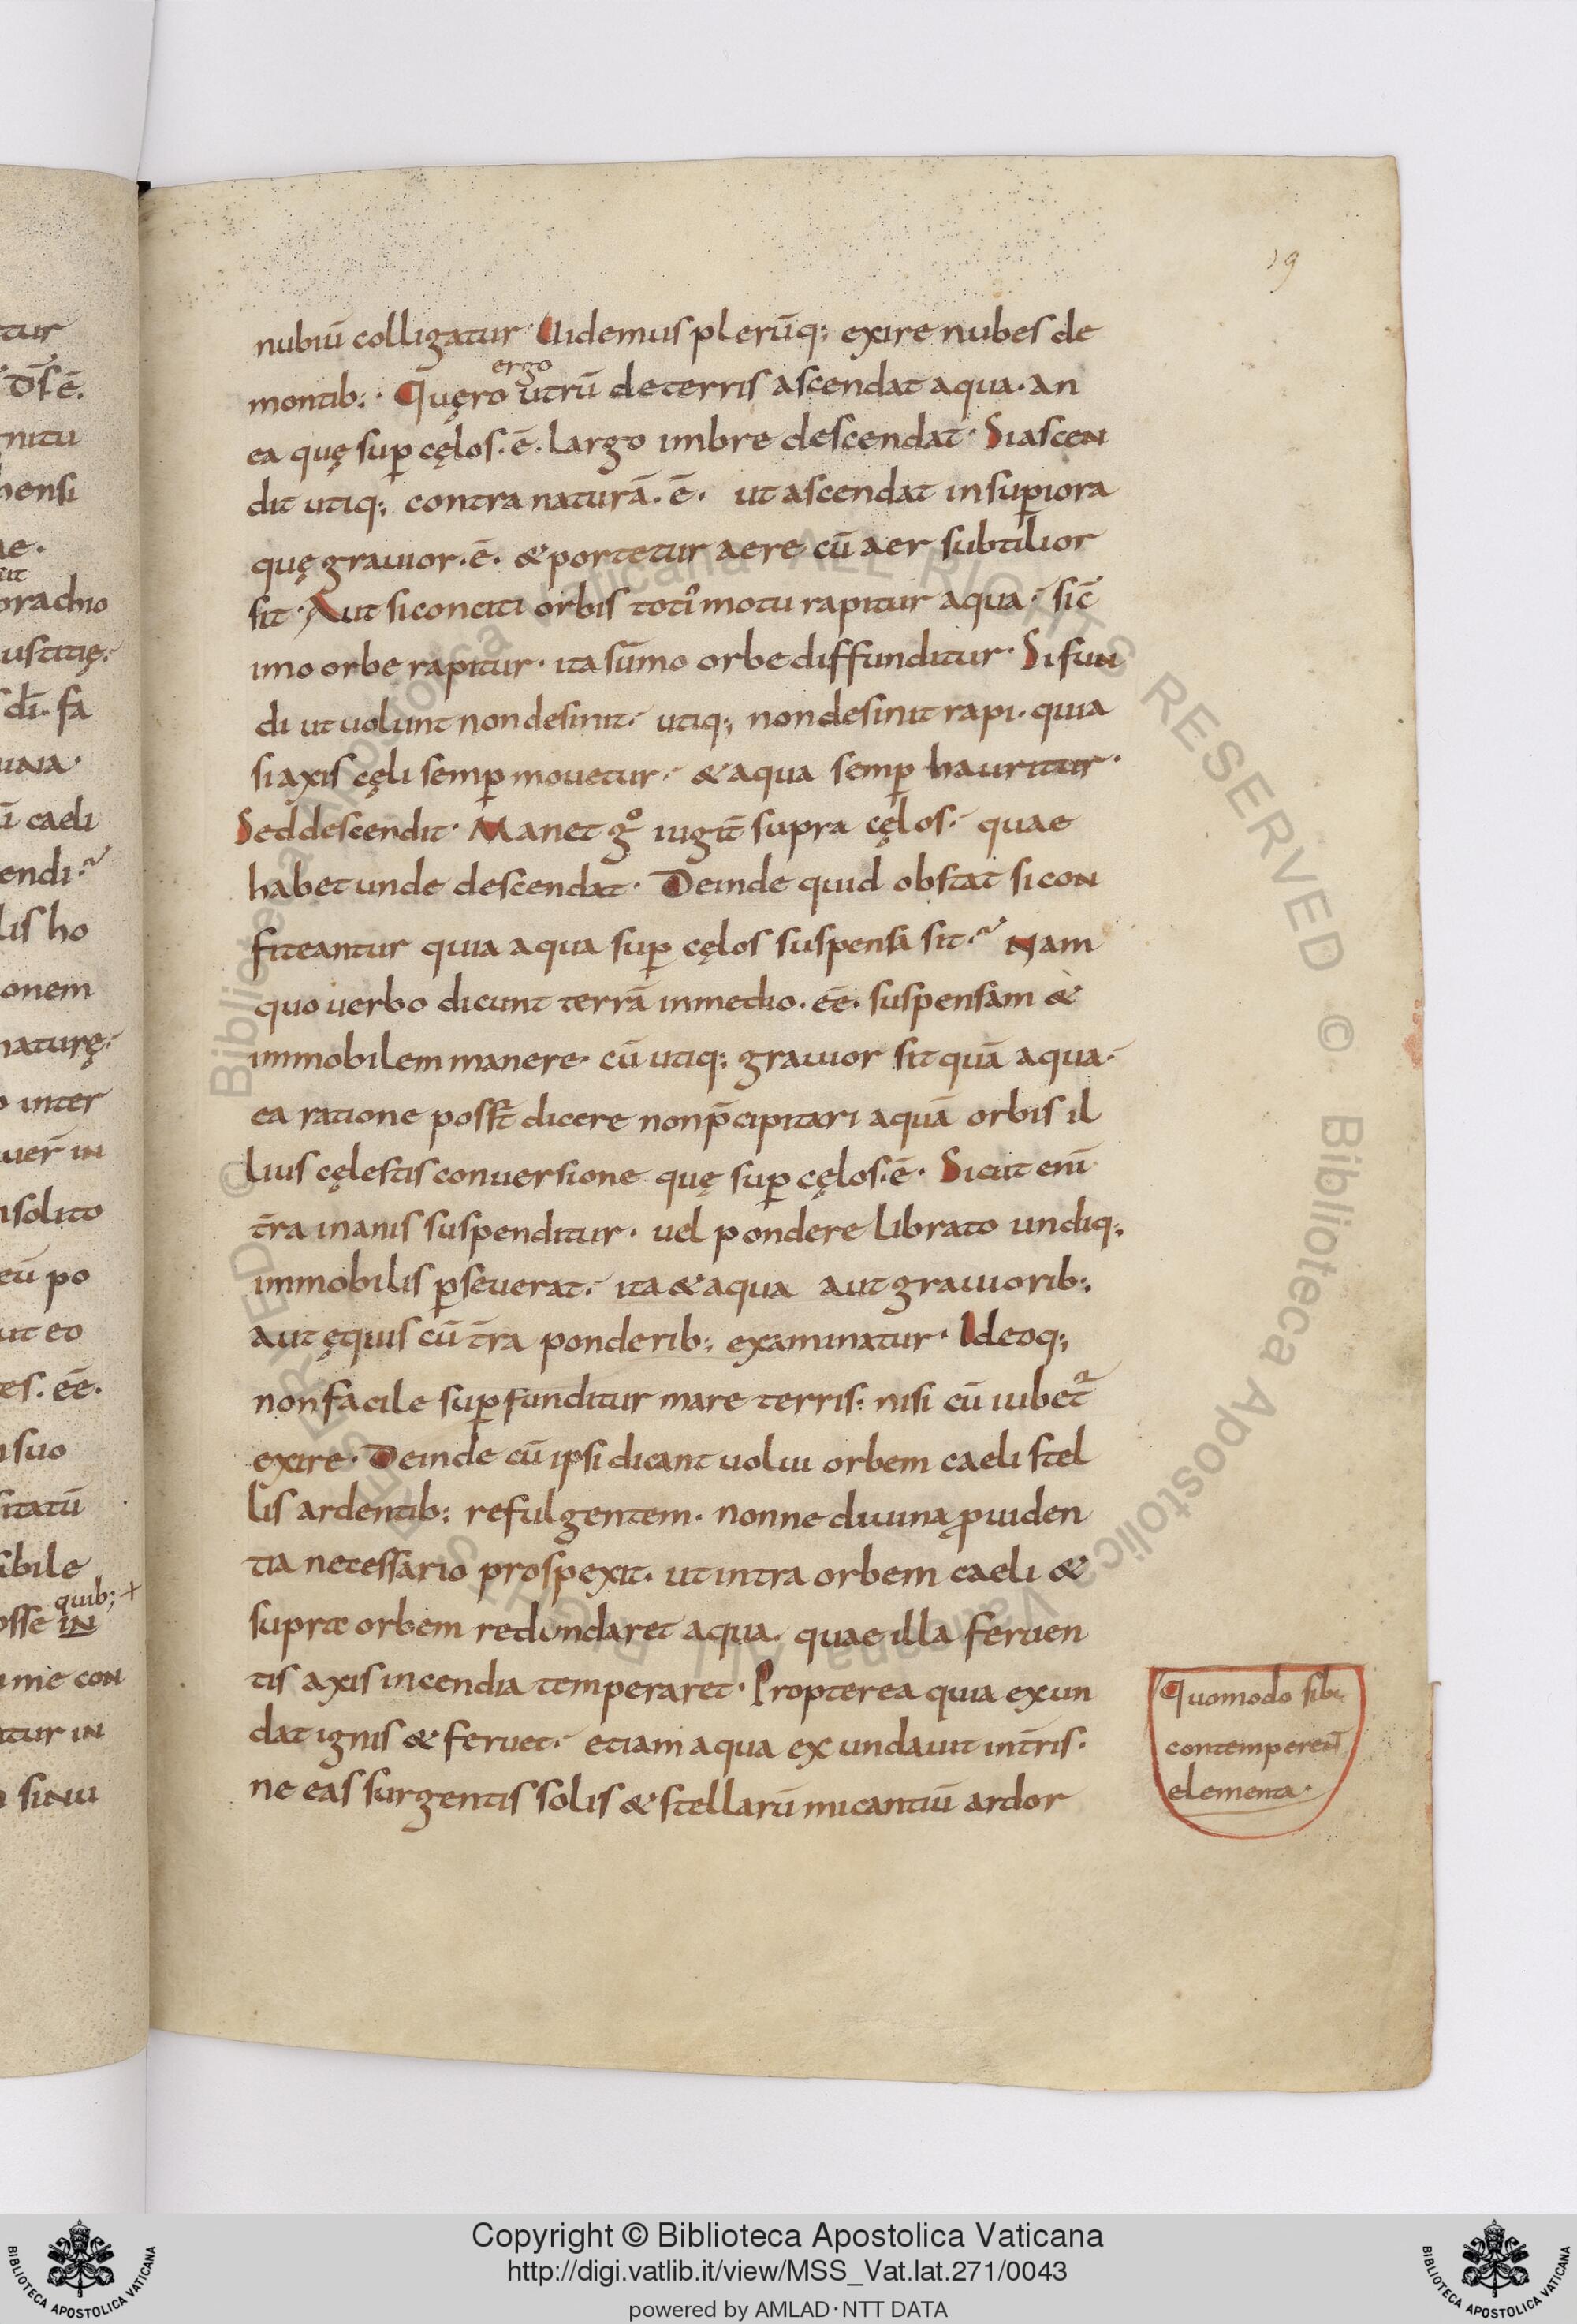 tur
ds̄ ē.
gnitu
hensi
ae.
ut
oradno
ustitię.
dī. fa
uaia.
ū caeli
endi.
lis ho
onem
naturę.
o inter
uer̄ in
nsolito
eū po
ut eo
es. eē.
suo
sitatū
ibile
quib; +
osse in
me con
atur in
sinu
19
nubiū colligatur· Uidemus plerūq; exire nubes de
ergo
montib:· Quęro utrū de terris ascendat aqua· an
ea quę sup̱ cęlos·ē· largo imbre descendat· Si ascen
dit utiq; contra naturā·ē· ut ascendat in sup̱iora
quę grauior·ē· & portetur aere cū aer subtilior
sit· Aut si conciti orbis toti᾽ motu rapitur aqua· sic̄
imo orbe rapitur· ita sūmo orbe diffunditur· Si fun
di ut uolunt non desinit· utiq; non desinit rapi· quia
si axis cęli semp̱ mouetur· & aqua semp̱ hauritur·
Sed descendit· Manet gͦ iugit̄ supra cęlos· quae
habet unde descendat· Deinde quid obstat si con
fiteantur quia aqua sup̱ cęlos suspensa sit· Nam
quo uerbo dicunt terrā in medio· eē· suspensam &
immobilem manere· cū utiq; grauior sit quā aqua·
ea ratione posst̄ dicere non p̄cipitari aquā orbis il
lius cęlestis conuersione quę sup̱ cęlos·ē· Sicut eni᷅
t̄ra inanis suspenditur· uel pondere librato undiq;
immobilis p̱seuerat· ita & aqua aut grauiorib;
aut ęquis cū t̄ra ponderib; examinatur· Ideoq;
non facile sup̱funditur mare terris: nisi cū iubet᷑
exire· Deinde cū ipsi dicant uolui orbem caeli stel
lis ardentib: refulgentem· nonne diuina ꝓuiden
tia necessario prospexit· ut intra orbem caeli &
supra orbem redundaret aqua· quae illa feruen
tis axis incendia temperaret· Propterea quia exun
dat ignis & feruet· etiam aqua exundauit in t̄ris·
ne eas surgentis solis & stellarū micantiū ardor
Quomodo sibi
contemperen̄t
elementa·
© Biblioteca Apostolica Vaticana ALL RIGHTS RESERVED © Biblioteca Apostolica Vaticana ALL RIGHTS RESERVED
Copyright © Biblioteca Apostolica Vaticana
http://digi.vatlib.it/view/MSS_Vat.lat.271/0043
powered by AMLAD·NTT DATA
BIBLIOTECA APOSTOLICA VATICANA
BIBLIOTECA APOSTOLICA VATICANA